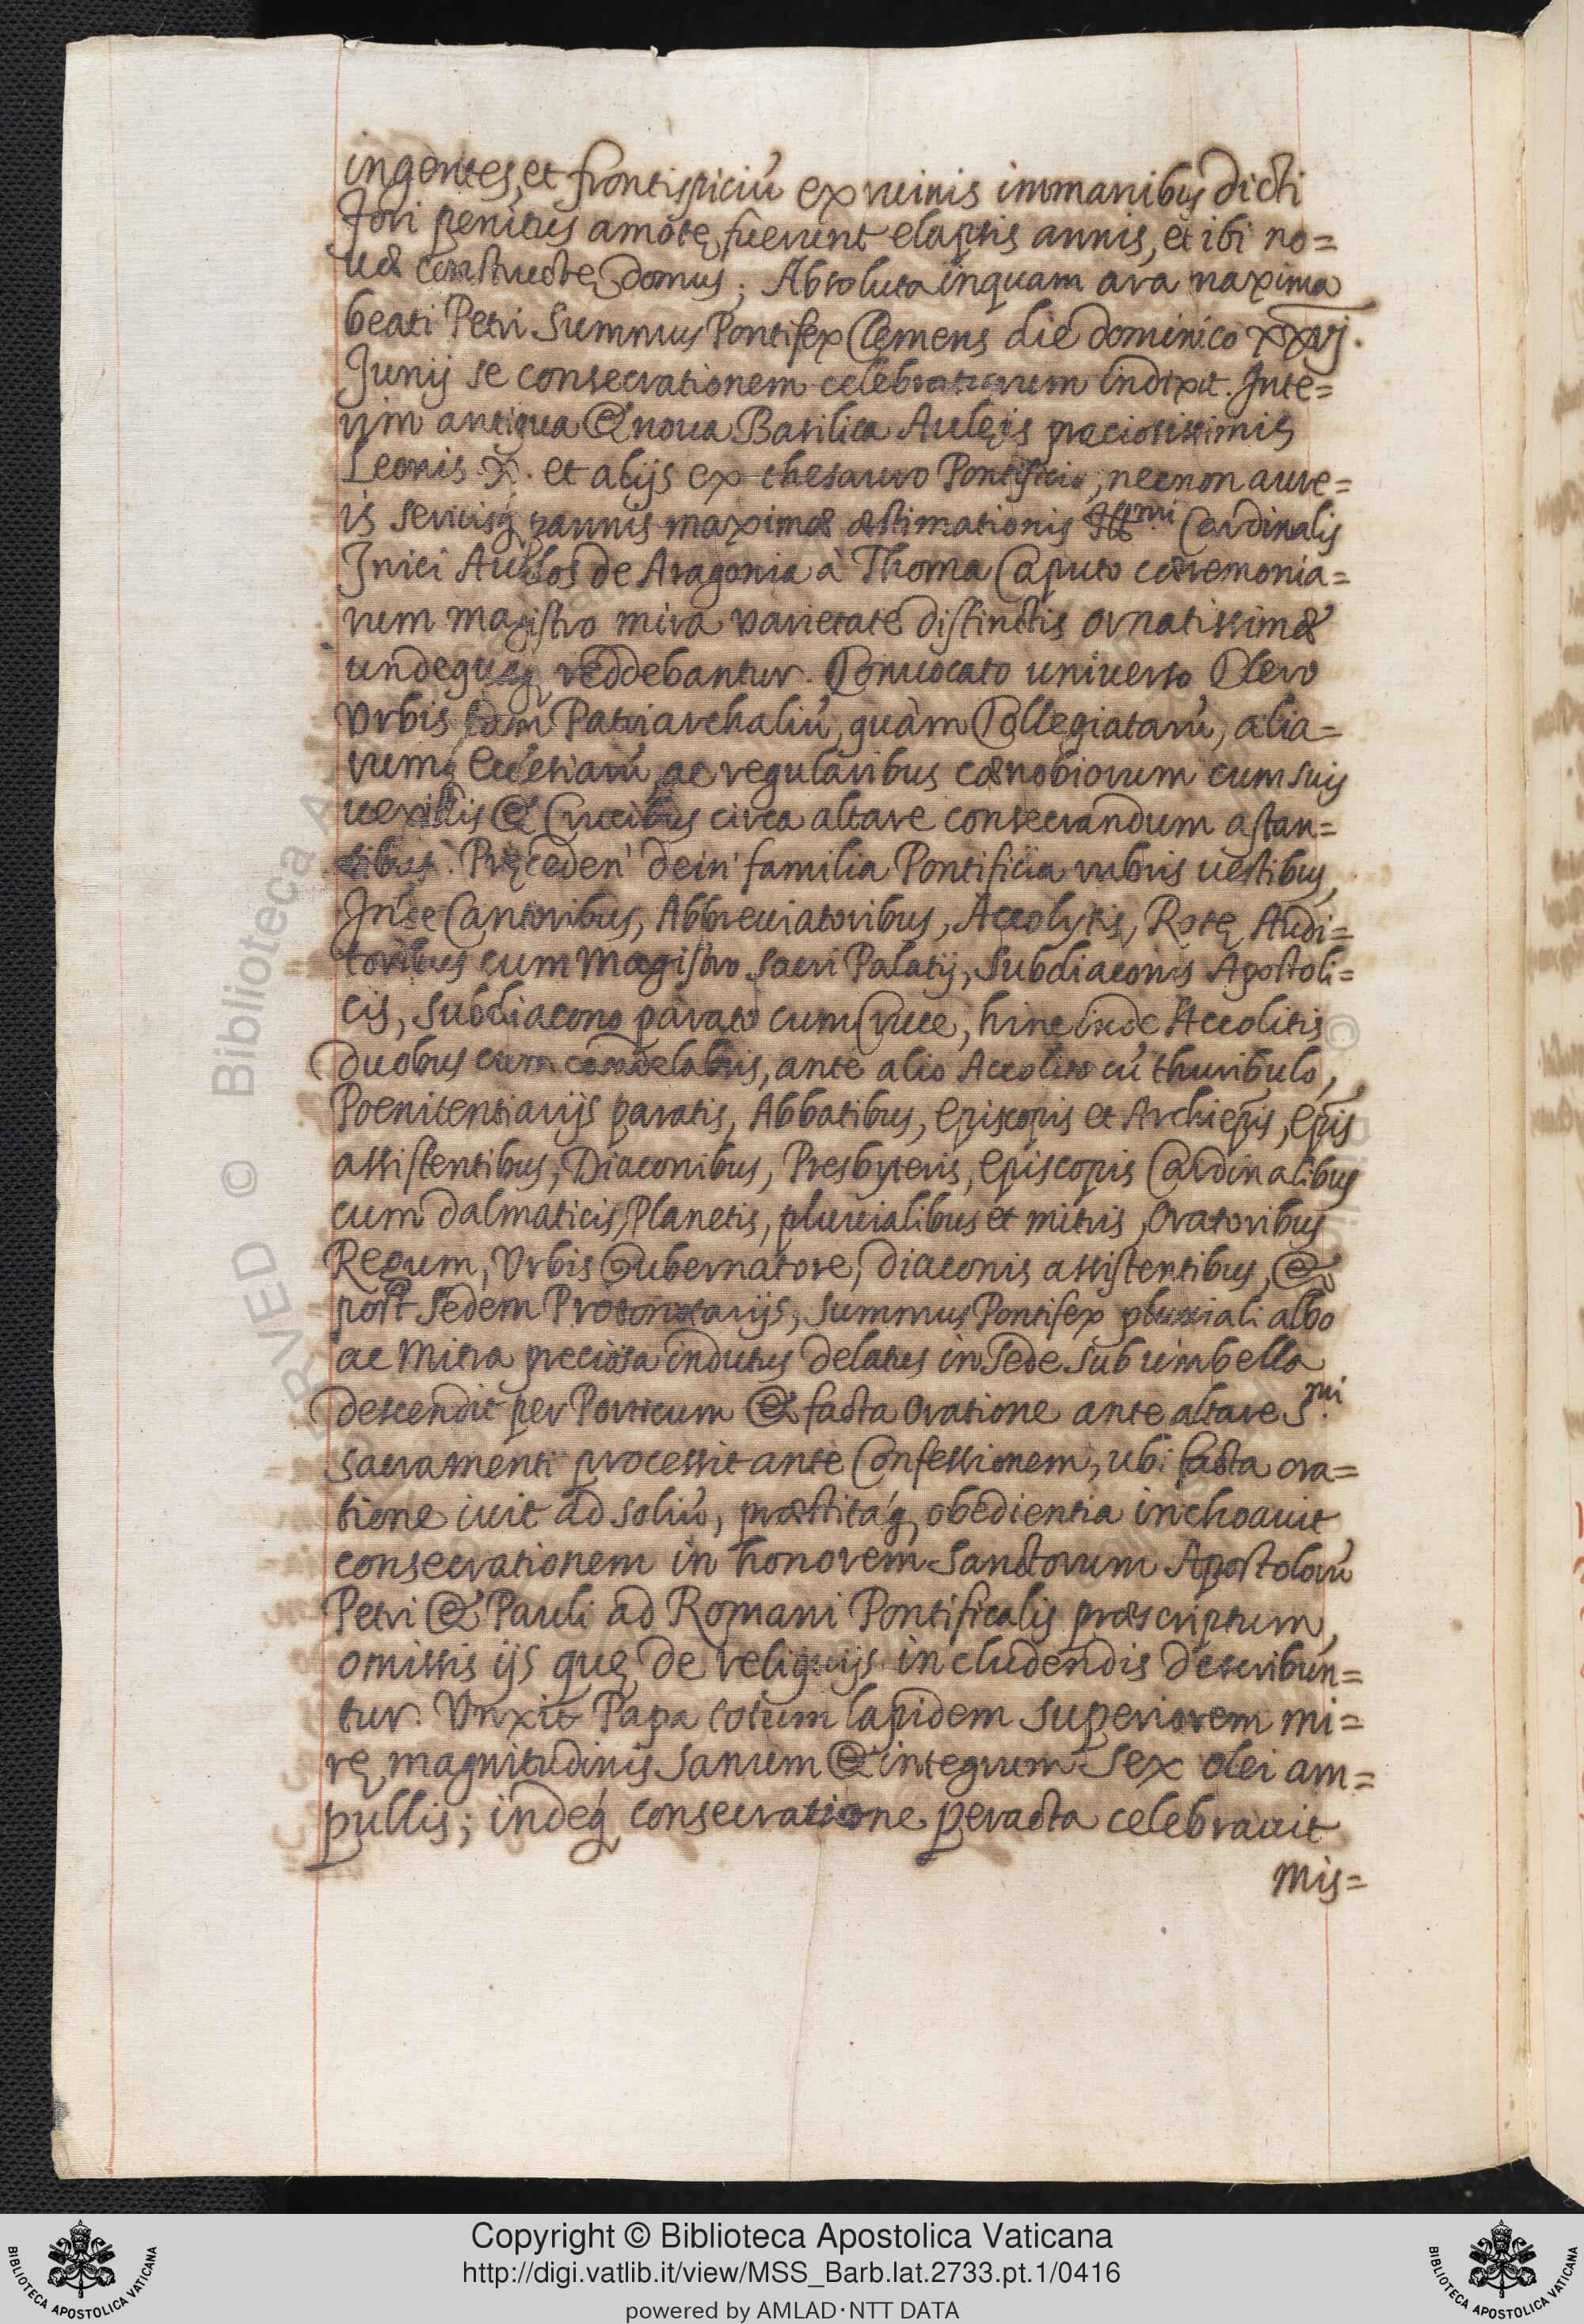 ingentes, et frontispiciũ ex ruinis immanibus dicti
Fori penitus amotę fuerunt elapsis annis, et ibi no=
uæ constructę domus; Absoluta inquam ara maxima
beati Petri Summus Pontifex Clemens die dominico xxvj.
Junij se consecrationem celebraturum indixit. Inte=
rim antiqua & noua Basilica Aulęis preciosissimis
Leonis X. et alijs ex thesauro Pontificio, necnon aure=
is sericisq́ pannis maximæ æstimationis Ill.mi Cardinalis
Inici Aualos de Aragonia à Thoma Caputo cæremonia=
rum magistro mira varietate distinctis ornatissimæ
undequaq reddebantur. Conuocato uniuerso Clero
Vrbis, tam Patriarchaliũ, quàm Collegiatarũ, alia=
rumq́ Ecclesiarũ, ac regularibus cænobiorum cum suis
uexillis & Crucibus circa altare consecrandum astan=
tibus. Pręceden' dein' familia Pontificia rubris uestibus,
Inde Cantoribus, Abbreuiatoribus, Accolytis, Rotę Audi=
toribus cum Magistro sacri Palatij, Subdiaconis Apostoli=
cis, subdiacono parato cum Cruce, hinc inde Accolitis
duobus cum candelabris, ante alio Accolito cũ thuribulo,
Poenitentiarijs paratis, Abbatibus, Episcopis et Archiep̃is, Ep̃is
assistentibus, Diaconibus, Presbyteris, Episcopis Cardinalibus
cum dalmaticis, Planetis, pluuialibus et mitris, Oratoribus
Regum, Vrbis Gubernatore, diaconis assistentibus, &
post Sedem Protonotarijs, Summus Pontifex pluuiali albo
ac Mitra preciosa indutus delatus in Sede sub umbella
descendit per Porticum & facta Oratione ante altare S.mi
Sacramenti processit ante Confessionem, ubi facta ora=
tione iuit ad soliũ, præstitáq, obedientia inchoauit
consecrationem in honorem Sanctorum Apostolorũ
Petri & Pauli ad Romani Pontificalis præscriptum,
omissis ijs quę de reliquijs includendis describun=
tur. Vnxit Papa totum lapidem superiorem mi=
rę magnitudinis sanum & integrum sex olei am=
pullis; indeq́ consecratione peracta celebrauit
Mis=
Copyright © Biblioteca Apostolica Vaticana
http://digi.vatlib.it/view/MSS_Barb.lat.2733.pt.1/0416
powered by AMLAD·NTT DATA
BIBLIOTECA APOSTOLICA VATICANA
BIBLIOTECA APOSTOLICA VATICANA